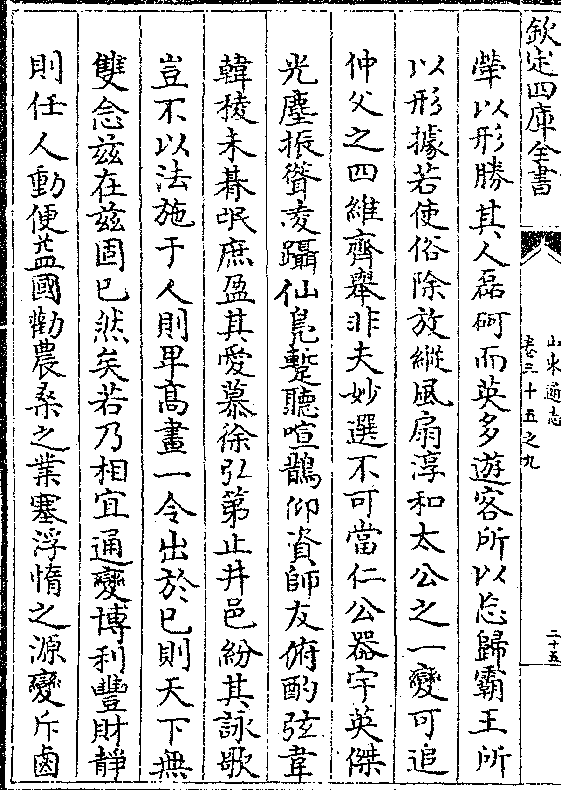 欽定四庫全書
山東通志
卷三十五之九
二十五
犖以形勝其人磊砢而英多遊客所以忘歸霸王所
以形據若使俗除放縱風扇淳和太公之一變可追
仲父之四維齊舉非夫妙選不可當仁公器宇英傑
光塵振聳凌躡仙鳧蹔聽喧鵲仰資師友俯酌弦韋
韓稜未朞氓庶盈其愛慕徐弘第止井邑紛其詠歌
豈不以法施于人則畢高畫一令出於已則天下無
雙念兹在兹固已然矣若乃相宜通變博利豐財靜
則任人動便益國勸農桑之業塞浮惰之源變斥鹵